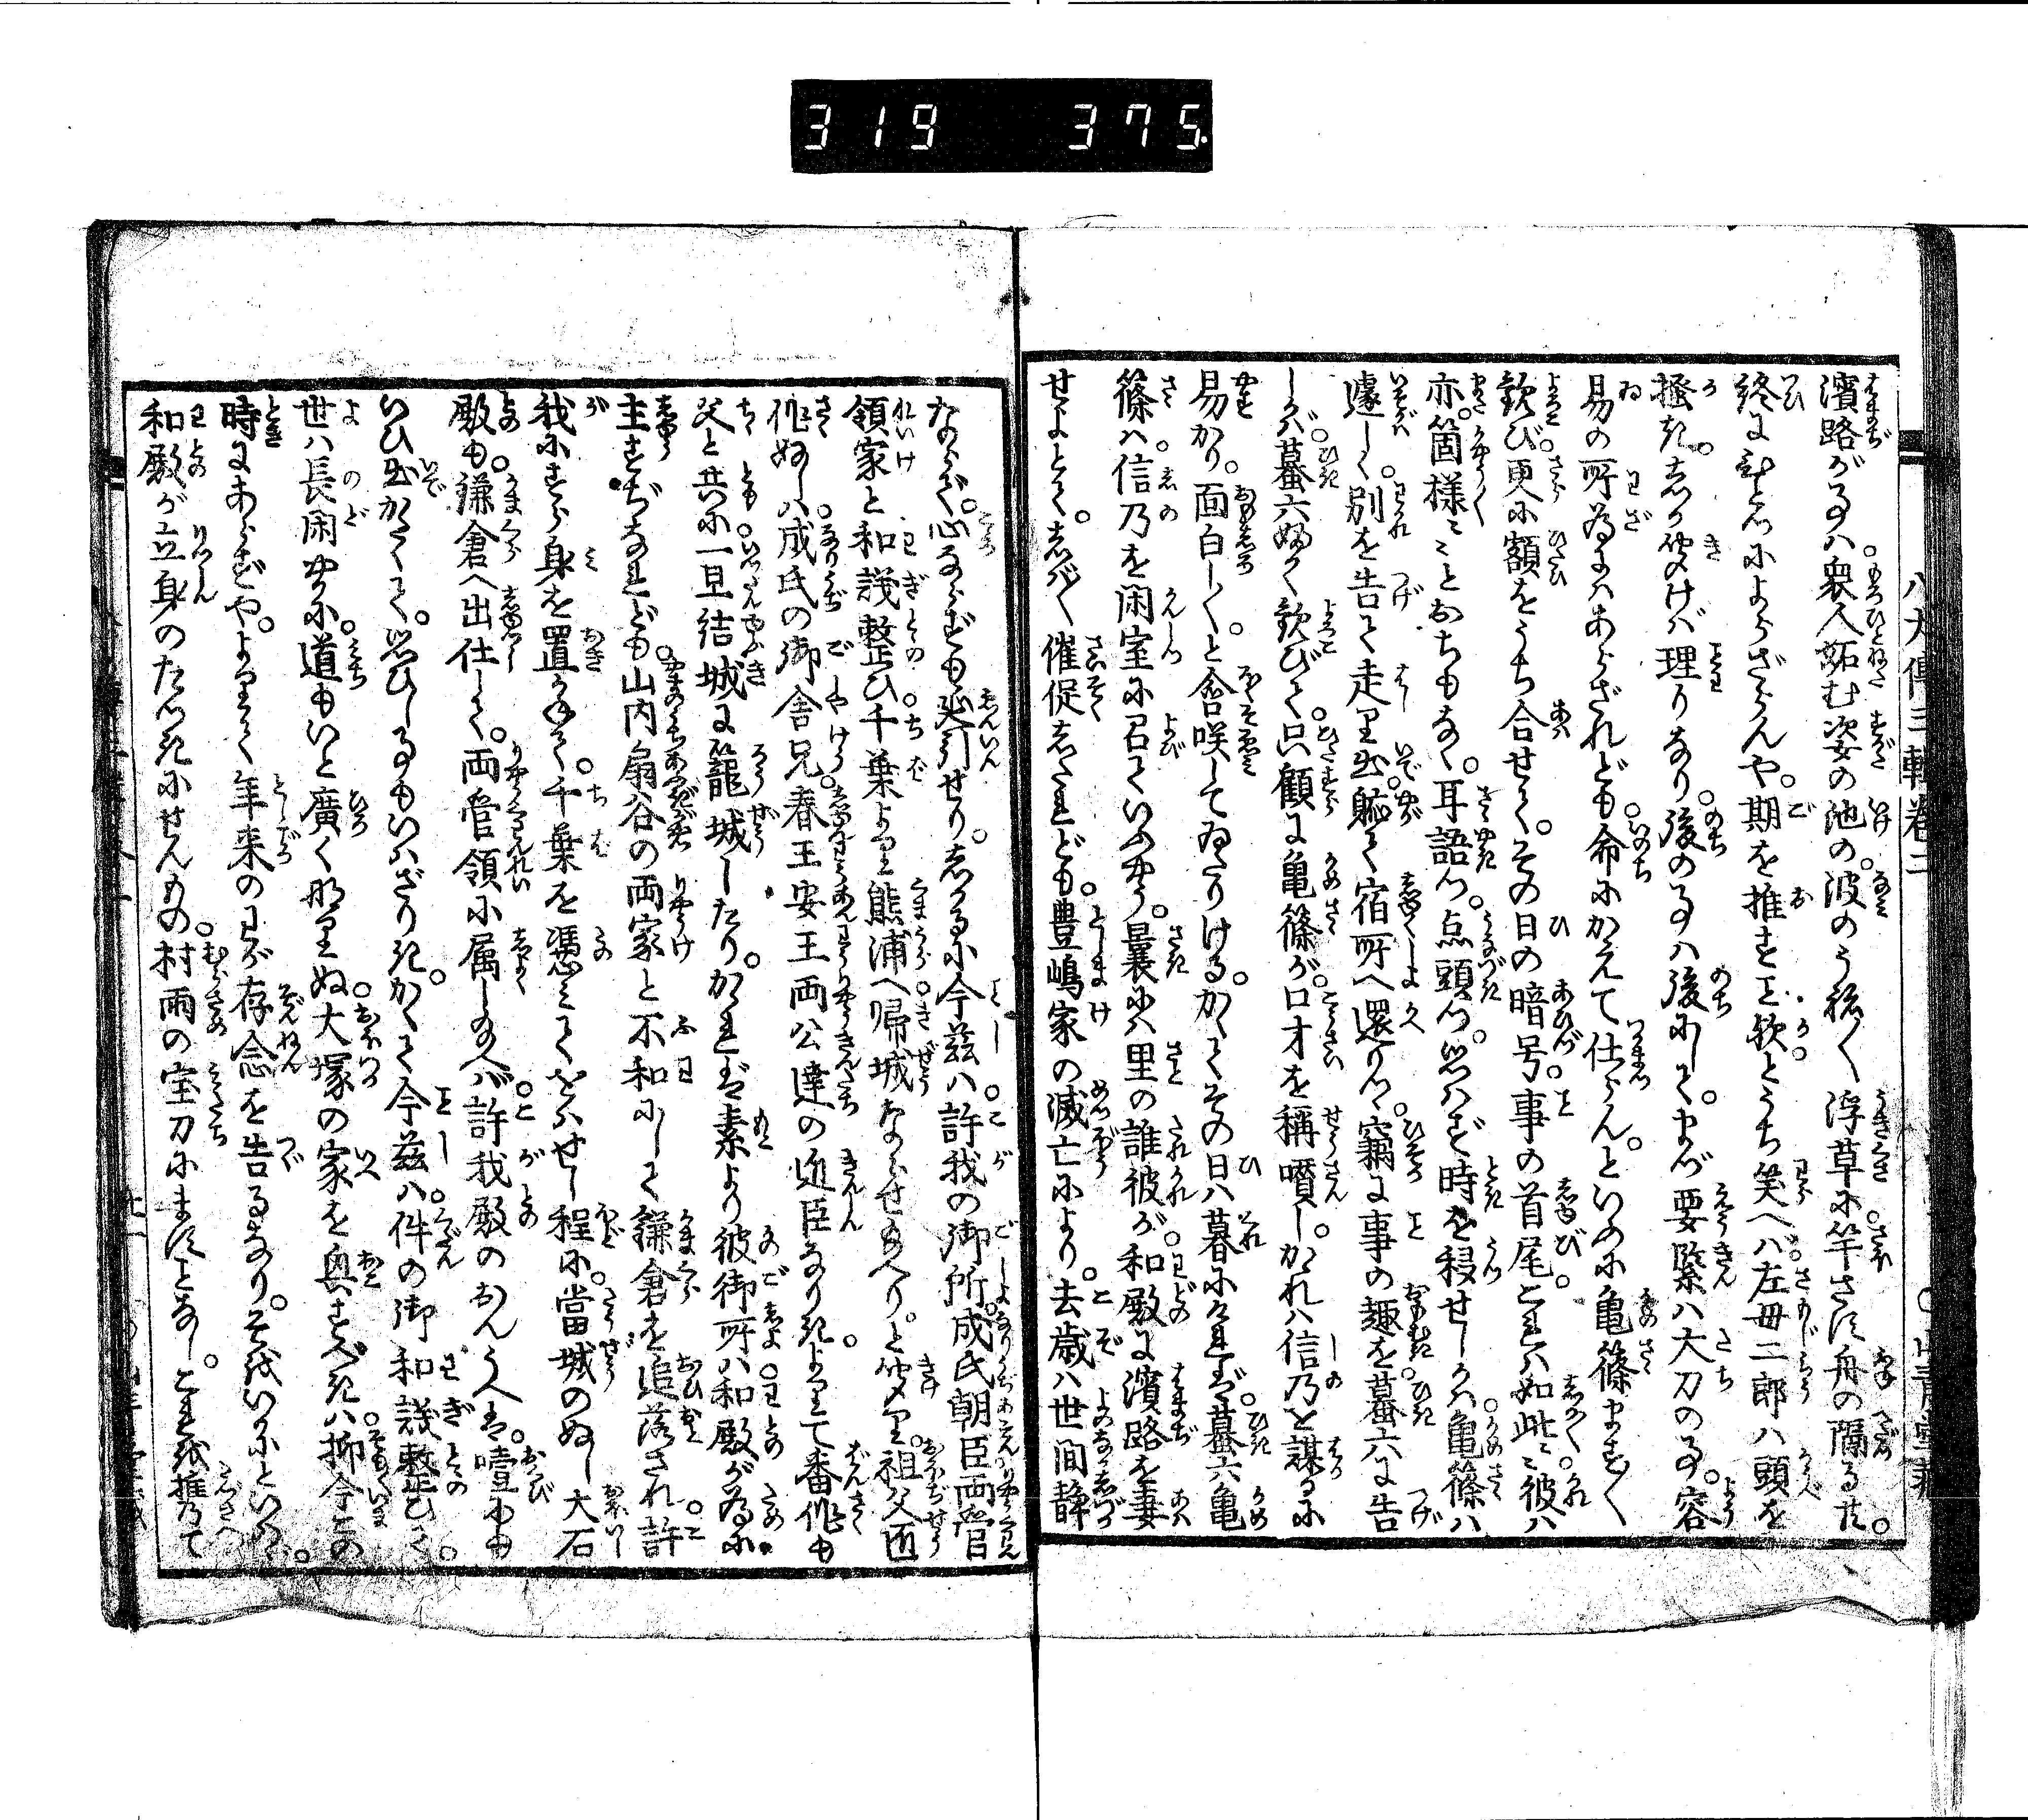 319 375
八犬傳三輯卷二
濱路がうへは衆人妬む姿の池の波のうね〳〵浮草に竿さす舟の隔るせ。
終にひとつによらざらんや。期を推すこと歟とうち笑へば。左母二郎ハ頭を
掻き。しか聞けば理りなり。後の事ハ後にして。まづ要緊ハ大刀の事。容
易の所為にハあらざれども。命にかえて仕らん。といふに亀篠ます〳〵
歓び。更に額をうち合せて。その日の暗号。事の首尾とすれバ如此々彼ハ
亦。箇様々々とおちもなく。耳語つ。点頭つ。思ハず時を移せしかバ亀篠ハ
遽しく。別を告て走り出。軈て宿所へ還りつ。竊に事の趣を。蟇六に告
しかバ。蟇六ふかく歓びて。只顧に亀篠が。口才を稱嘆し。かれハ信乃を謀るに
易かり。面白し〳〵。と含咲してゐたりける。かくてその日ハ暮にければ。蟇六亀
篠ハ。信乃を閑室に召ていふやう。曩にハ里の誰彼が。和殿に濱路を妻
せよとて。しば〳〵催促したれども。豊嶋家の滅亡により。去歳ハ世間靜
ならず。心ならずも延引せり。しかるに今茲ハ。許我の御所。成氏朝臣両管
領家と和議整ひ。千葉より熊浦へ帰城ならせ給へり。と聞り。祖父匠
作ぬしハ。成氏の御舎兄。春王安王両公達の近臣なりき。よりて番作も
父と共に一旦結城に籠城したり。かゝれば素より彼御所ハ和殿が為に
主すぢなれども。山内扇谷の両家と不和にして鎌倉を追落され許
我にすら身を置かねて。千葉を憑みてをハせし程に。當城のぬし大石
殿も。鎌倉へ出仕して。両管領に属し給へば。許我殿のおんうへは。噫にも
いひ出がたくて。思ひし事もいハざりき。かくて今茲ハ。件の御和議整ひて。
世ハ長閑やかに。道もいと廣くなりぬ。大塚の家を興すべきハ。抑今この
時にあらずや。よりて年来のわが存念を告るなり。そをいかにといへバ。
和殿が立身のたつきにせんもの。村雨の宝刀にますことなし。これを推乃て